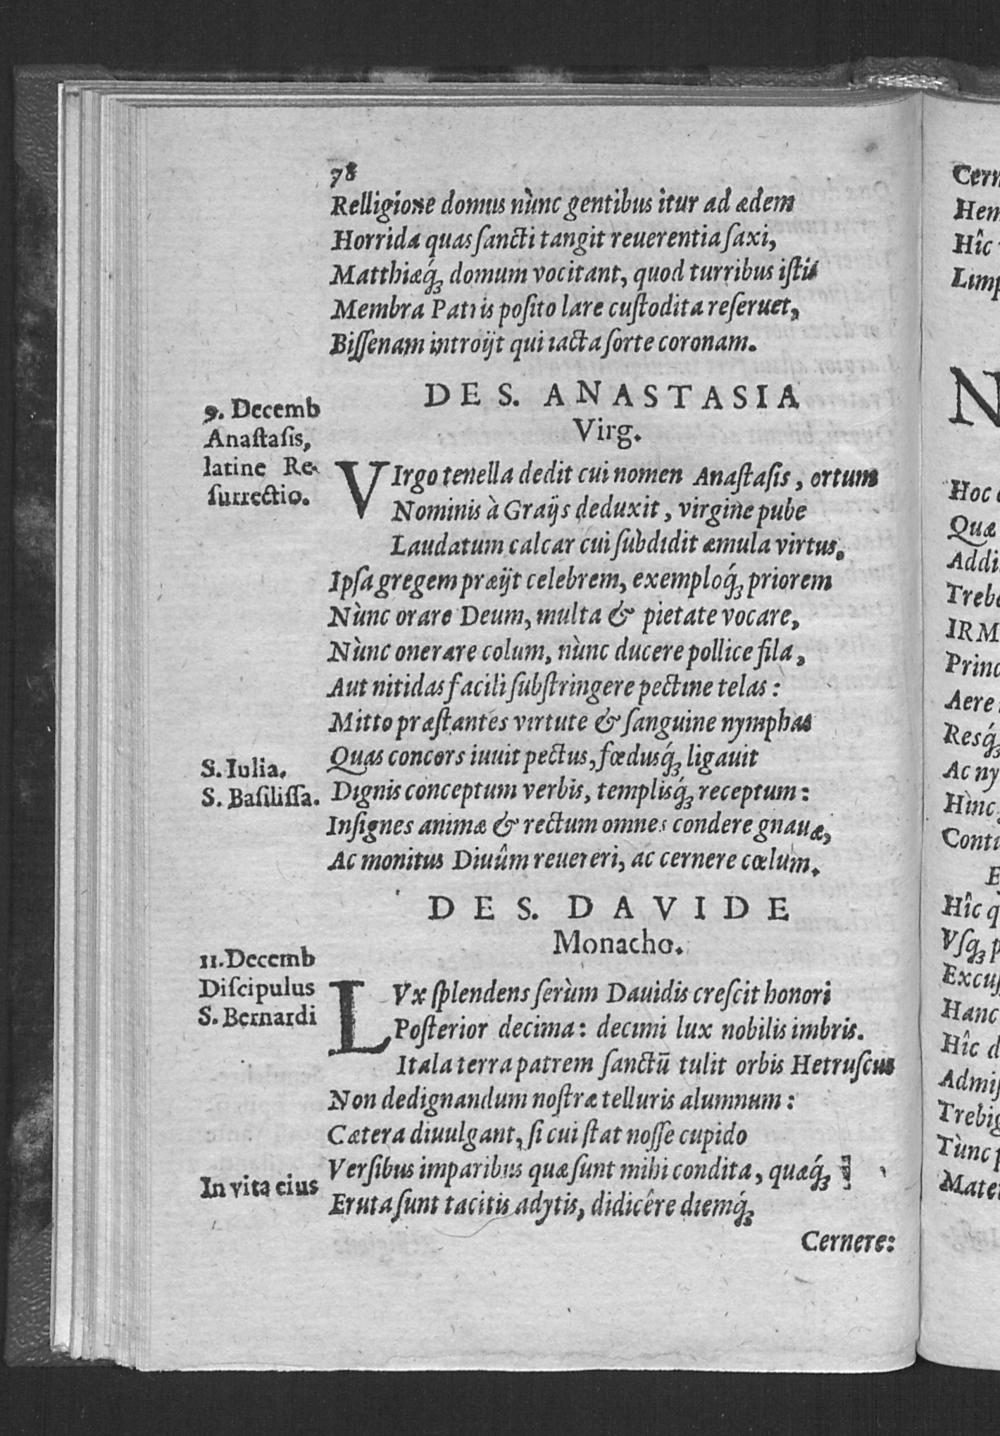 78
Relligione domus nùnc gentibus itur ad ædem
Horrida quas sancti tangit reuerentia saxi,
Matthiæq́ꝫ domum vocitant, quod turribus istis
Membra Patris posito lare custodita reseruet,
Bissenam introijt qui iacta sorte coronam.
DE S. ANASTASIA
Virg.
9. Decemb
Anastasis,
latine Re-
surrectio.
VIrgo tenella dedit cui nomen Anastasis, ortum
Nominis à Graijs deduxit, virgine pube
Laudatum calcar cui sùbdidit æmula virtus.
Ipsa gregem præijt celebrem, exemploq́ꝫ priorem
Nùnc orare Deum, multa & pietate vocare,
Nùnc onerare colum, nùnc ducere pollice fila,
Aut nitidas facili substringere pectine telas:
Mitto præstantes virtute & sanguine nymphas
S. Iulia.
S. Basilissa.
Quas concors iuuit pectus, fœdusq́ꝫ ligauit
Dignis conceptum verbis, templisq́ꝫ receptum:
Insignes animæ & rectum omnes condere gnauæ,
Ac monitus Diuûm reuereri, ac cernere cœlum.
DE S. DAVIDE
Monacho.
11. Decemb
Discipulus
S. Bernardi
LVx splendens serùm Dauidis crescit honori
Posterior decima: decimi lux nobilis imbris.
Itala terra patrem sanctū tulit orbis Hetruscus
Non dedignandum nostræ telluris alumnum:
Cætera diuulgant, si cui stat nosse cupido
In vita eius
Versibus imparibus quæ sunt mihi condita, quæq́ꝫ
Eruta sunt tacitis adytis, didicêre diemq́ꝫ
Cernere:
Cern
Hem
Hîc
Limp
N
Hoc
Quæ
Addi
Trebe
IRM
Princ
Aere
Resq́ꝫ
Ac ny
Hinc
Contu
E
Hîc q
Vsqꝫ p
Excus
Hanc
Hîc d
Admis
Trebig
Tùnc p
Mater